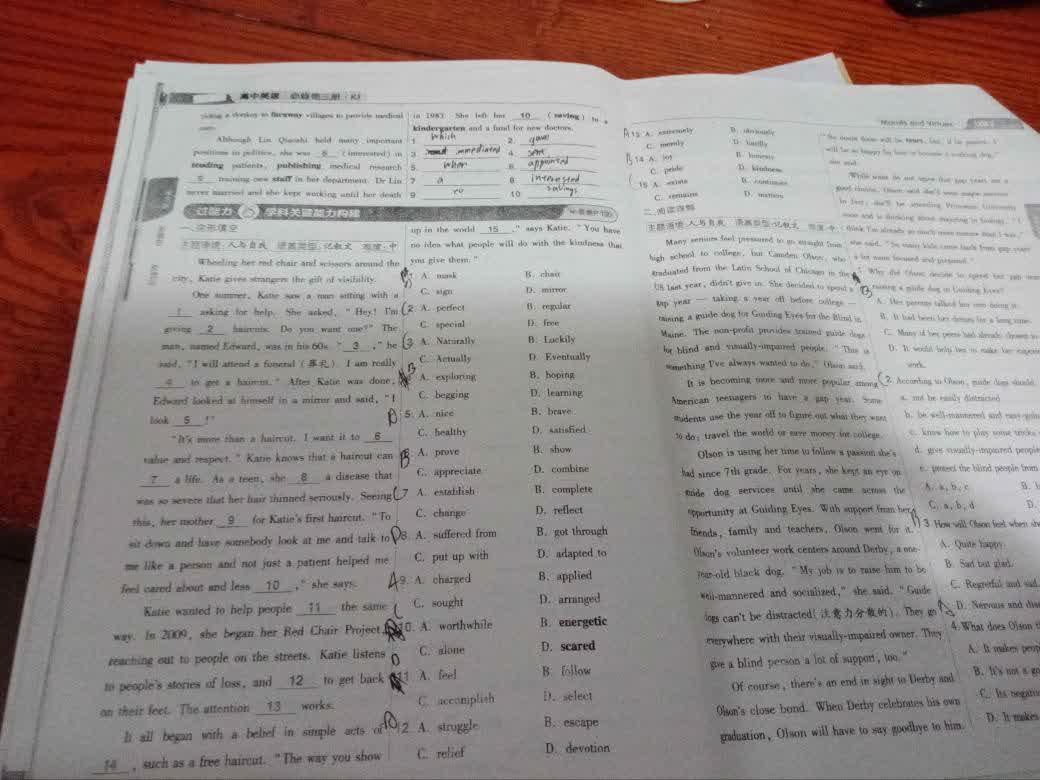 高中英语 必修第三册·RJ
riding a donkey to faraway villages to provide medical
care.
Although Lin Qiaozhi held many important
positions in politics, she was 8 (interested) in
treating patients, publishing medical research
9 training new staff in her department. Dr Lin
never married and she kept working until her death
in 1983. She left her 10 (saving) to a
kindergarten and a fund for new doctors.
1 which 2 gave
3 immediated 4 sent
5. when 6 appointed
7 a 8 interested
9 to 10 savings
过能力 学科关键能力构建
一、完形填空
主题语境:人与自我 语篇类型:记叙文 难度:中
Wheeling her red chair and scissors around the
city, Katie gives strangers the gift of visibility.
One summer, Katie saw a man sitting with a
1 asking for help. She asked, "Hey! I'm
giving 2 haircuts. Do you want one?" The
man, named Edward, was in his 60s. "3," he
said, "I will attend a funeral (葬礼). I am really
4 to get a haircut." After Katie was done,
Edward looked at himself in a mirror and said, "I
look 5!"
"It's more than a haircut. I want it to 6
value and respect." Katie knows that a haircut can
7 a life. As a teen, she 8 a disease that
was so severe that her hair thinned seriously. Seeing
this, her mother 9 for Katie's first haircut. "To
sit down and have somebody look at me and talk to
me like a person and not just a patient helped me
feel cared about and less 10," she says.
Katie wanted to help people 11 the same
way. In 2009, she began her Red Chair Project,
reaching out to people on the streets. Katie listens
to people's stories of loss, and 12 to get back
on their feet. The attention 13 works.
It all began with a belief in simple acts of
14, such as a free haircut. "The way you show
up in the world 15," says Katie. "You have
no idea what people will do with the kindness that
you give them."
A. mask B. chair
C. sign D. mirror
2. A. perfect B. regular
C. special D. free
3 A. Naturally B. Luckily
C. Actually D. Eventually
B
A. exploring B. hoping
C. begging D. learning
D 5. A. nice B. brave
C. healthy D. satisfied
B A. prove B. show
C. appreciate D. combine
C 7 A. establish B. complete
C. change D. reflect
D 8. A. suffered from B. got through
C. put up with D. adapted to
A 9. A. charged B. applied
C. sought D. arranged
10. A. worthwhile B. energetic
C. alone D. scared
11 A. feel B. follow
C. accomplish D. select
D 12. A. struggle B. escape
C. relief D. devotion
A 13 A. extremely B. obviously
C. merely D. hardly
B 14 A. joy B. honesty
C. pride D. kindness
15 A. exists B. continues
C. remains D. matters
二、阅读理解
主题语境:人与自我 语篇类型:记叙文 难度:中
Many seniors feel pressured to go straight from
high school to college, but Camden Olson, who
graduated from the Latin School of Chicago in the
US last year, didn't give in. She decided to spend a
gap year — taking a year off before college —
raising a guide dog for Guiding Eyes for the Blind in
Maine. The non-profit provides trained guide dogs
for blind and visually-impaired people. "This is
something I've always wanted to do," Olson said.
It is becoming more and more popular among
American teenagers to have a gap year. Some
students use the year off to figure out what they want
to do, travel the world or save money for college.
Olson is using her time to follow a passion she's
had since 7th grade. For years, she kept an eye on
guide dog services until she came across the
opportunity at Guiding Eyes. With support from her
friends, family and teachers, Olson went for it.
Olson's volunteer work centers around Derby, a one-
year-old black dog. "My job is to raise him to be
well-mannered and socialized," she said. "Guide
dogs can't be distracted(注意力分散的). They go
everywhere with their visually-impaired owner. They
give a blind person a lot of support, too."
Of course, there's an end in sight to Derby and
Olson's close bond. When Derby celebrates his own
graduation, Olson will have to say goodbye to him.
Morals and Virtues
she said.
she said. "So many kids come back from gap years
a lot more focused and prepared."
1 Why did Olson decide to spend her gap year
raising a guide dog in Guiding Eyes?
A. Her parents talked her into doing it.
B. It had been her dream for a long time.
C. Many of her peers had already
D. It would help her to make her
work.
2. According to Olson, guide dogs should
a. not be easily distracted
b. be well-mannered and easy-going
c. know how to play some tricks
d. give visually-impaired people
e. protect the blind people from
A. a, b, c B.
C. a, b, d D.
3 How will Olson feel when she
A. Quite happy.
B. Sad but glad.
C. Regretful and sad.
D. Nervous and
4. What does Olson
A. It makes
B. It's not a
C. Its
D. It makes